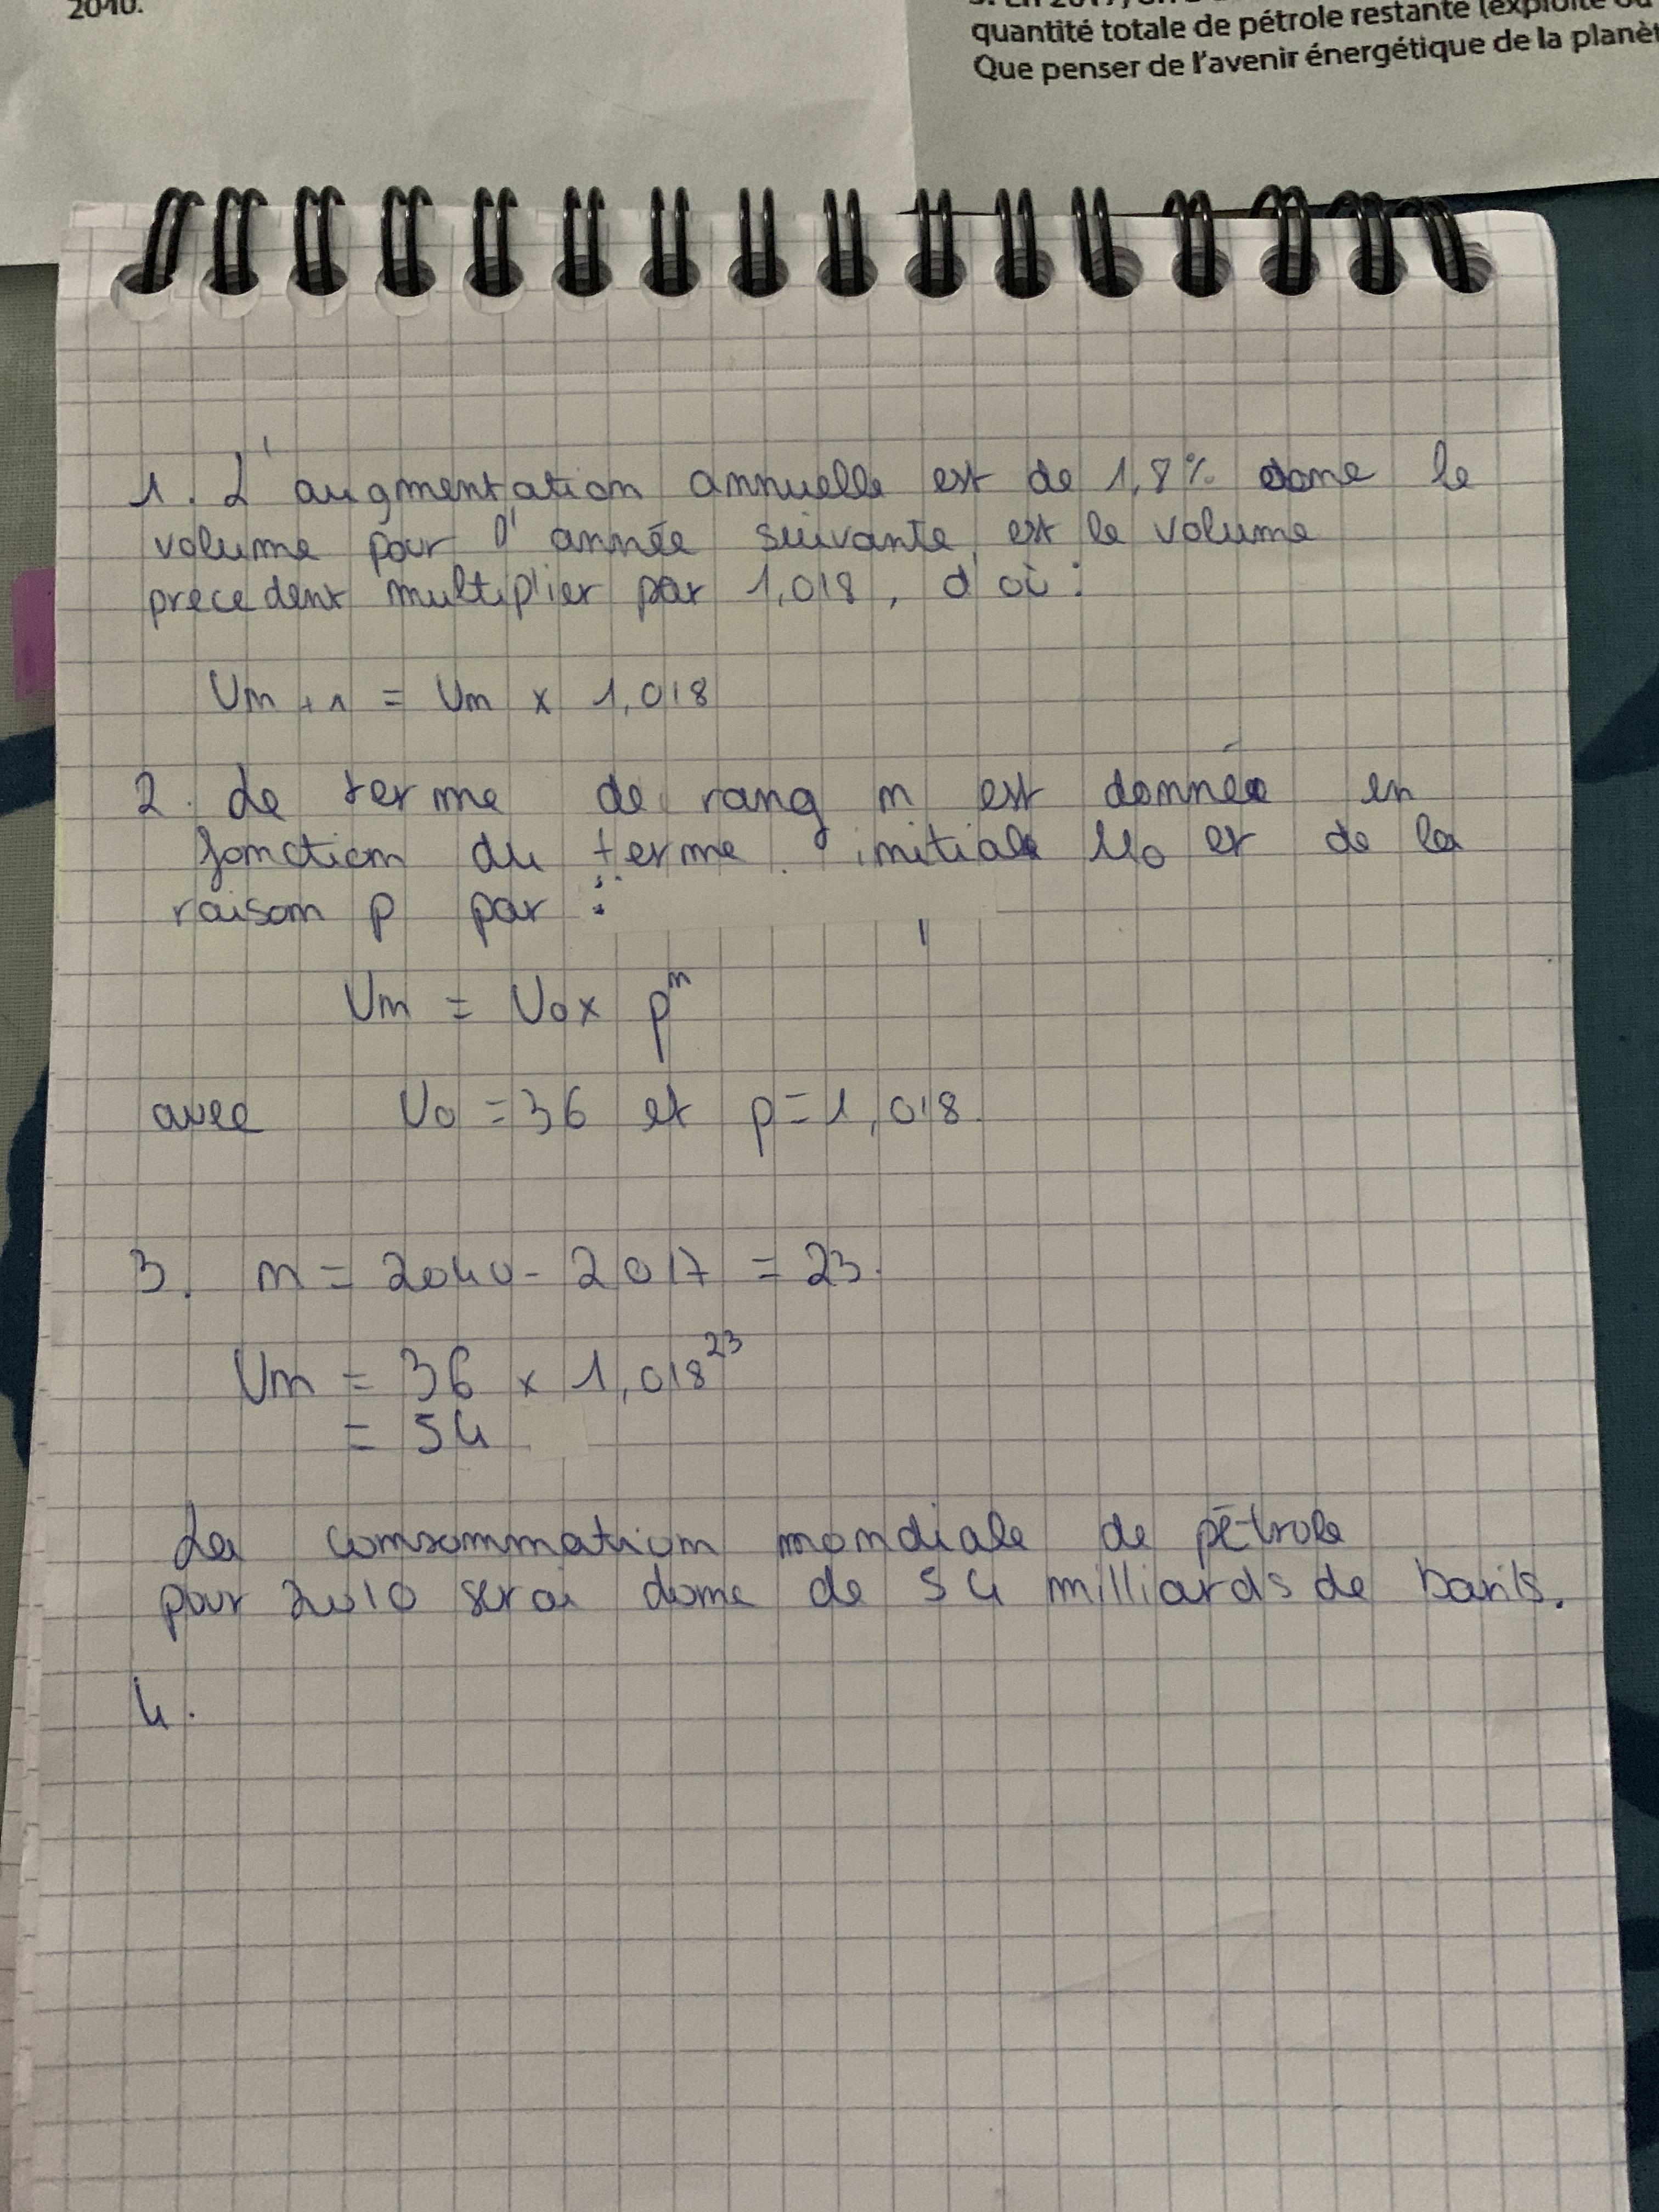 2040.
quantité totale de pétrole restante (exploité ou
Que penser de l'avenir énergétique de la planèt
1. L'augmentation annuelle est de 1,8% donc le
volume pour l'année suivante, est le volume
precedent multiplier par 1,018, d'où :
Un+1 = Un x 1,018
2. Le terme de rang n est donnée en
fonction du terme initiale U0 et de la
raison p par :
Un = U0 x p^n
avec U0 = 36 et p = 1,018.
3. n = 2040 - 2017 = 23.
Un = 36 x 1,018^23
= 54
La consommation mondiale de pétrole
pour 2010 serai donc de 54 milliards de barils.
4.